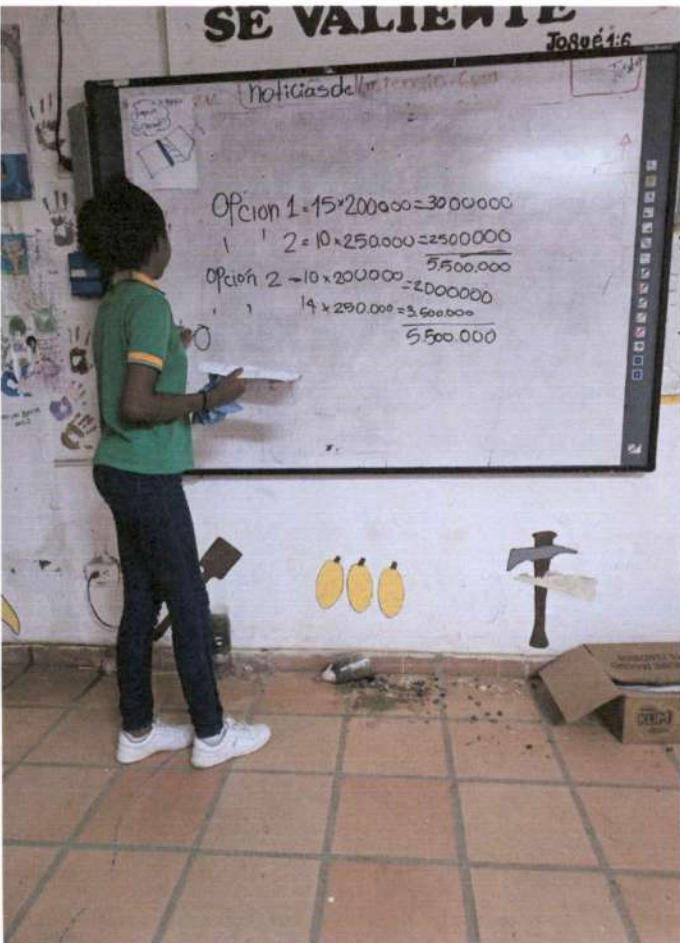 SE VALIENTE
JOSUÉ 1:6
noticias de
Opcion 1 = 15 × 200000 = 3000000
" 2 = 10 × 250.000 = 2500000
5.500.000
Opción 2 - 10 × 200000 = 2000000
" 14 × 250.000 = 3.500.000
5.500.000
O
KLIM